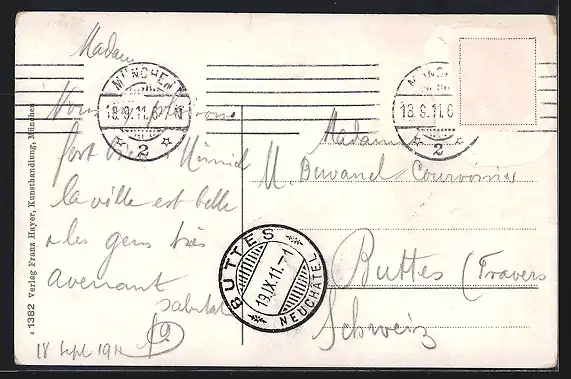 Madame
MÜNCHEN
18.9.11.6-7 N
2
MÜNC
18.9.11.6
2
Nous
fort
la ville est belle
& les gens très
avenant
18 Sept 1911
Madame
M. Duvanel Courvoisier
Buttes (Travers
Schweiz
BUTTES
19.IX.11.-1
NEUCHÂTEL
x 1382 Verlag Franz Hayer, Kunsthandlung, München